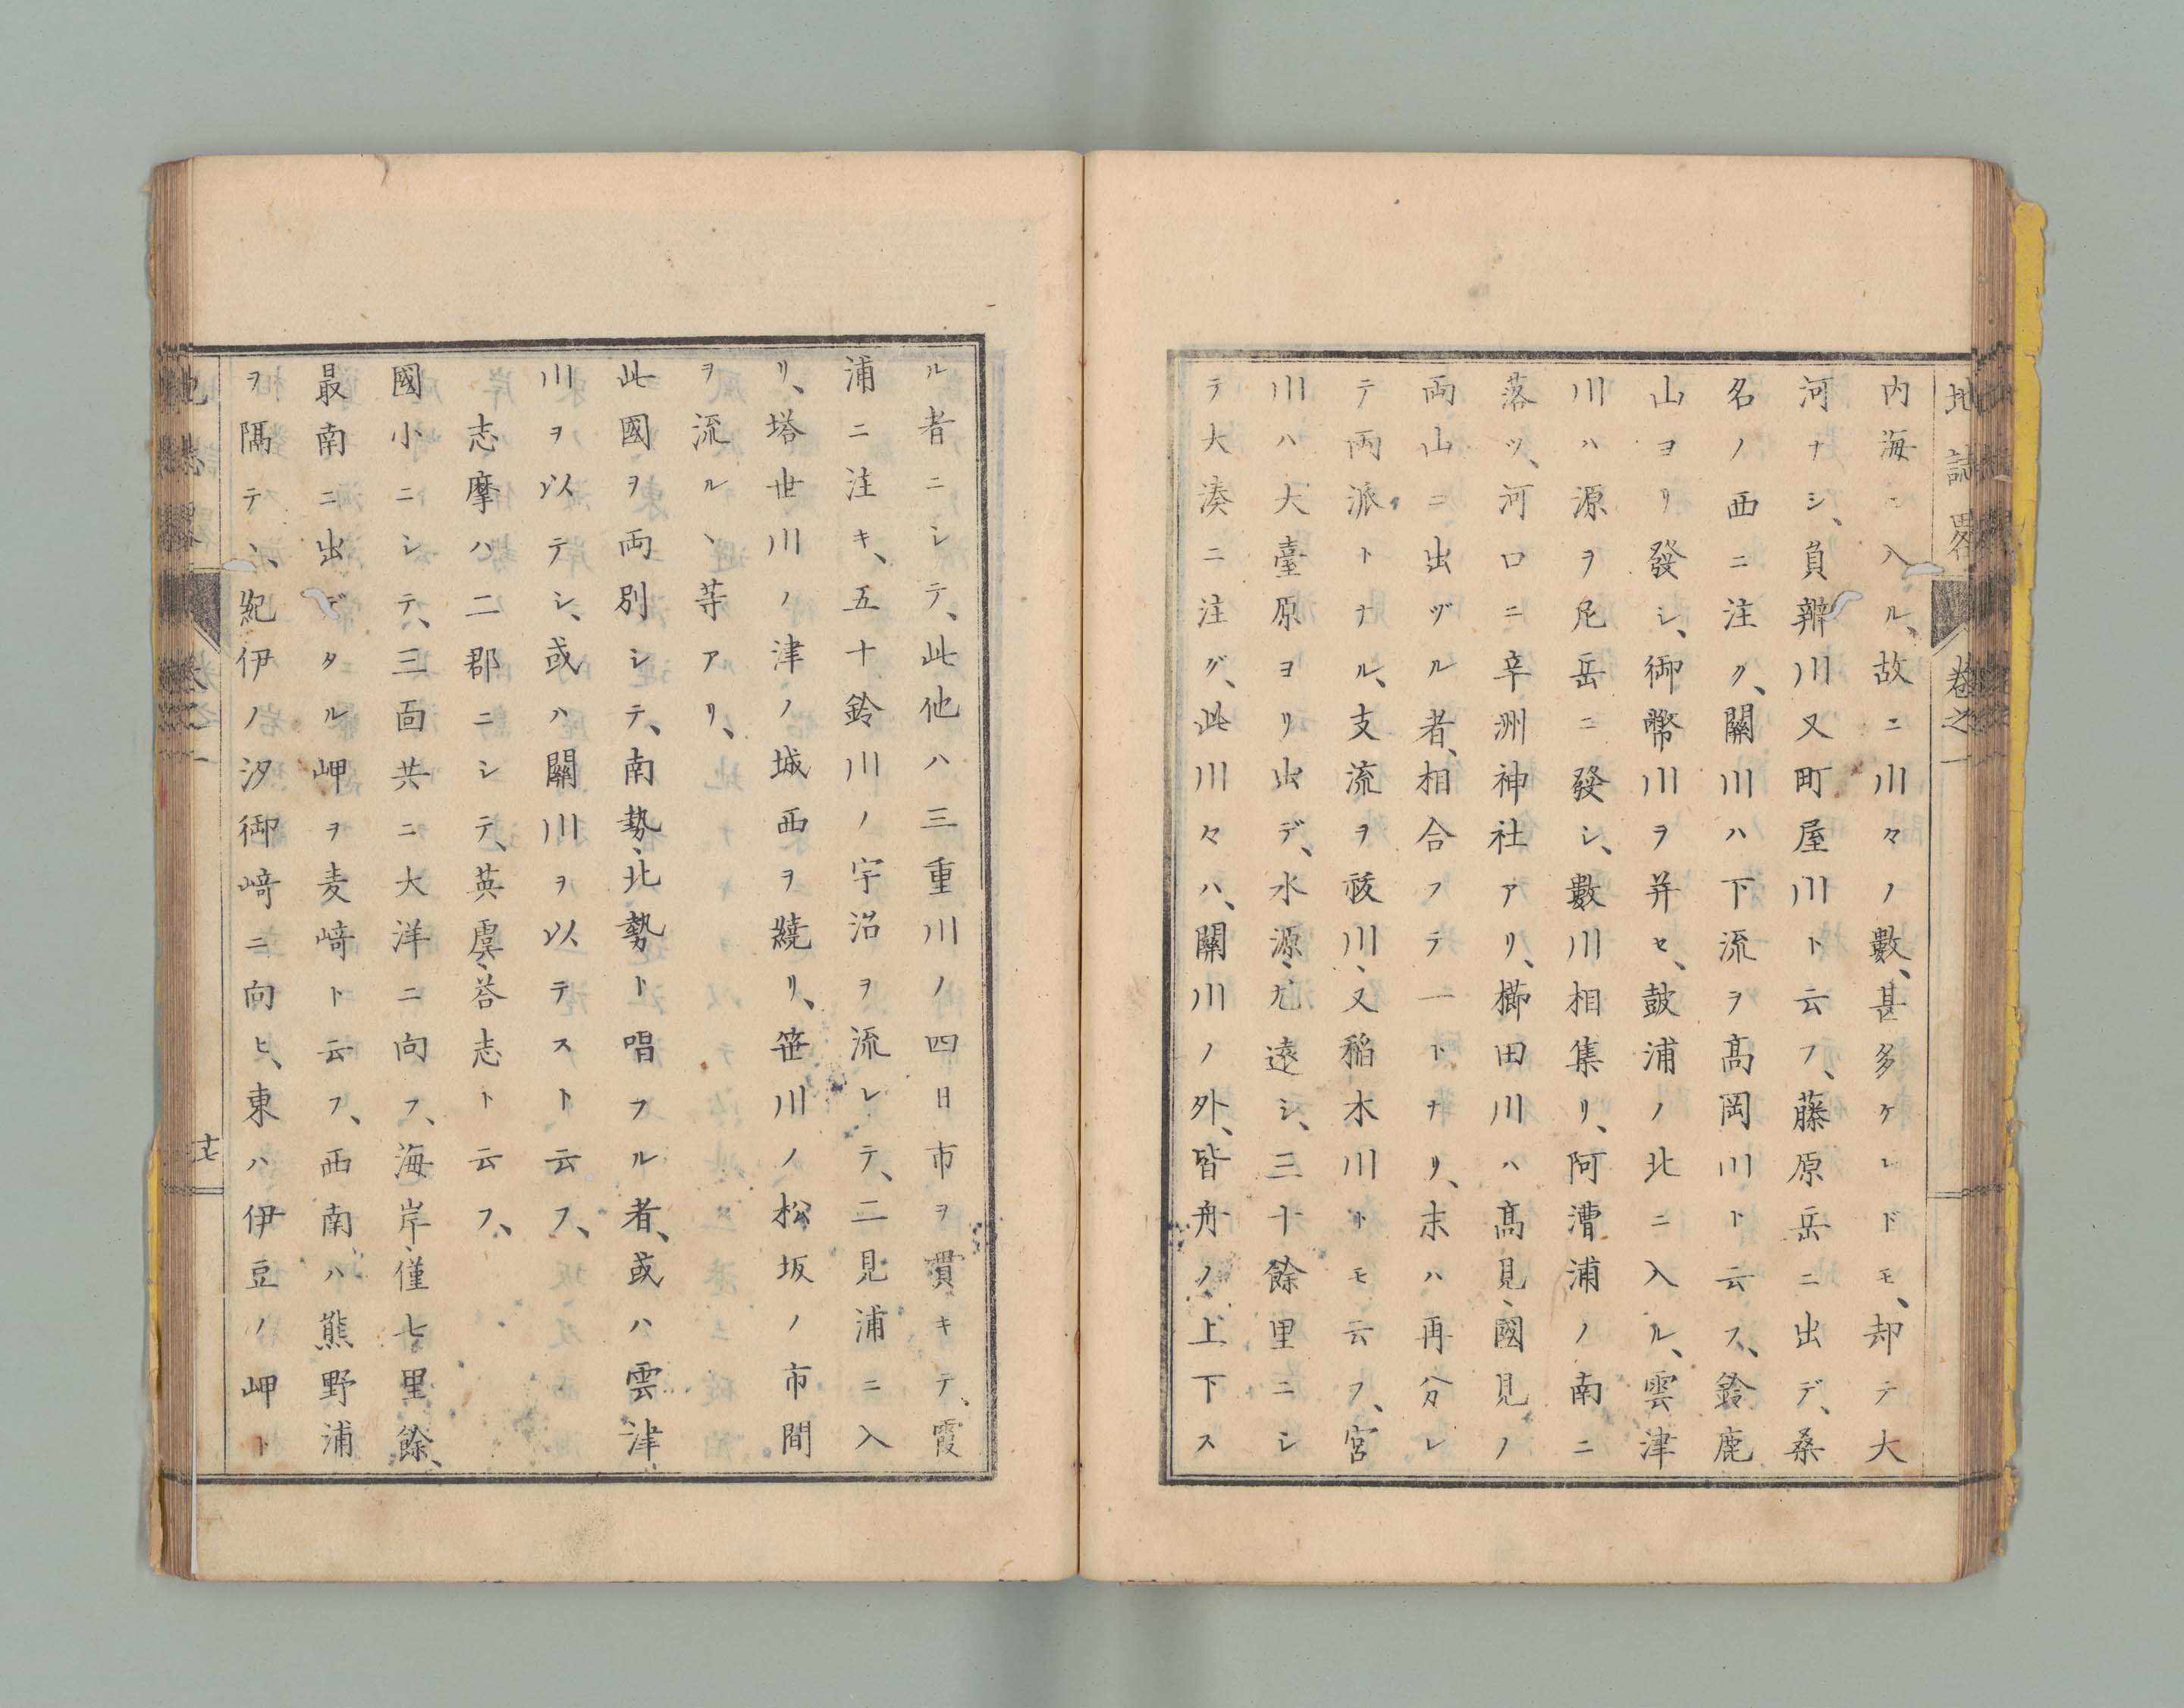 地誌畧 卷之一
内海ニ入ル、故ニ川々ノ數、甚多ケレドモ、却テ大
河ナシ、負辨川又町屋川ト云フ、藤原岳ニ出デ、桑
名ノ西ニ注ク、關川ハ下流ヲ髙岡川ト云フ、鈴鹿
山ヨリ發シ、御幣川ヲ并セ、鼓浦ノ北ニ入ル、雲津
川ハ源ヲ尼岳ニ發シ、數川相集リ、阿漕浦ノ南ニ
落ツ、河口ニ辛洲神社アリ、櫛田川ハ髙見、國見ノ
両山ニ出ヅル者、相合フテ一トナリ、末ハ再分レ
テ両派トナル、支流ヲ祓川、又稲木川トモ云フ、宮
川ハ大臺原ヨリ出デ、水源、尤遠シ、三十餘里ニシ
テ大湊ニ注グ、此川々ハ、關川ノ外、皆舟ノ上下ス
ル者ニシテ、此他ハ三重川ノ四日市ヲ貫キテ、霞
浦ニ注キ、五十鈴川ノ宇治ヲ流レテ、二見浦ニ入
リ、塔世川ノ津ノ城西ヲ繞リ、笹川ノ松坂ノ市間
ヲ流ル、等アリ、
此國ヲ両別シテ、南勢、北勢ト唱フル者、或ハ雲津
川ヲ以テシ、或ハ關川ヲ以テスト云フ、
志摩ハ二郡ニシテ、英虞、荅志ト云フ、
國小ニシテ、三面共ニ大洋ニ向フ、海岸、僅七里餘、
最南ニ出デタル岬ヲ麦﨑ト云フ、西南ハ熊野浦
ヲ隔テヽ、紀伊ノ汐御﨑ニ向ヒ、東ハ伊豆ノ岬ト
地誌畧 卷之一 十七